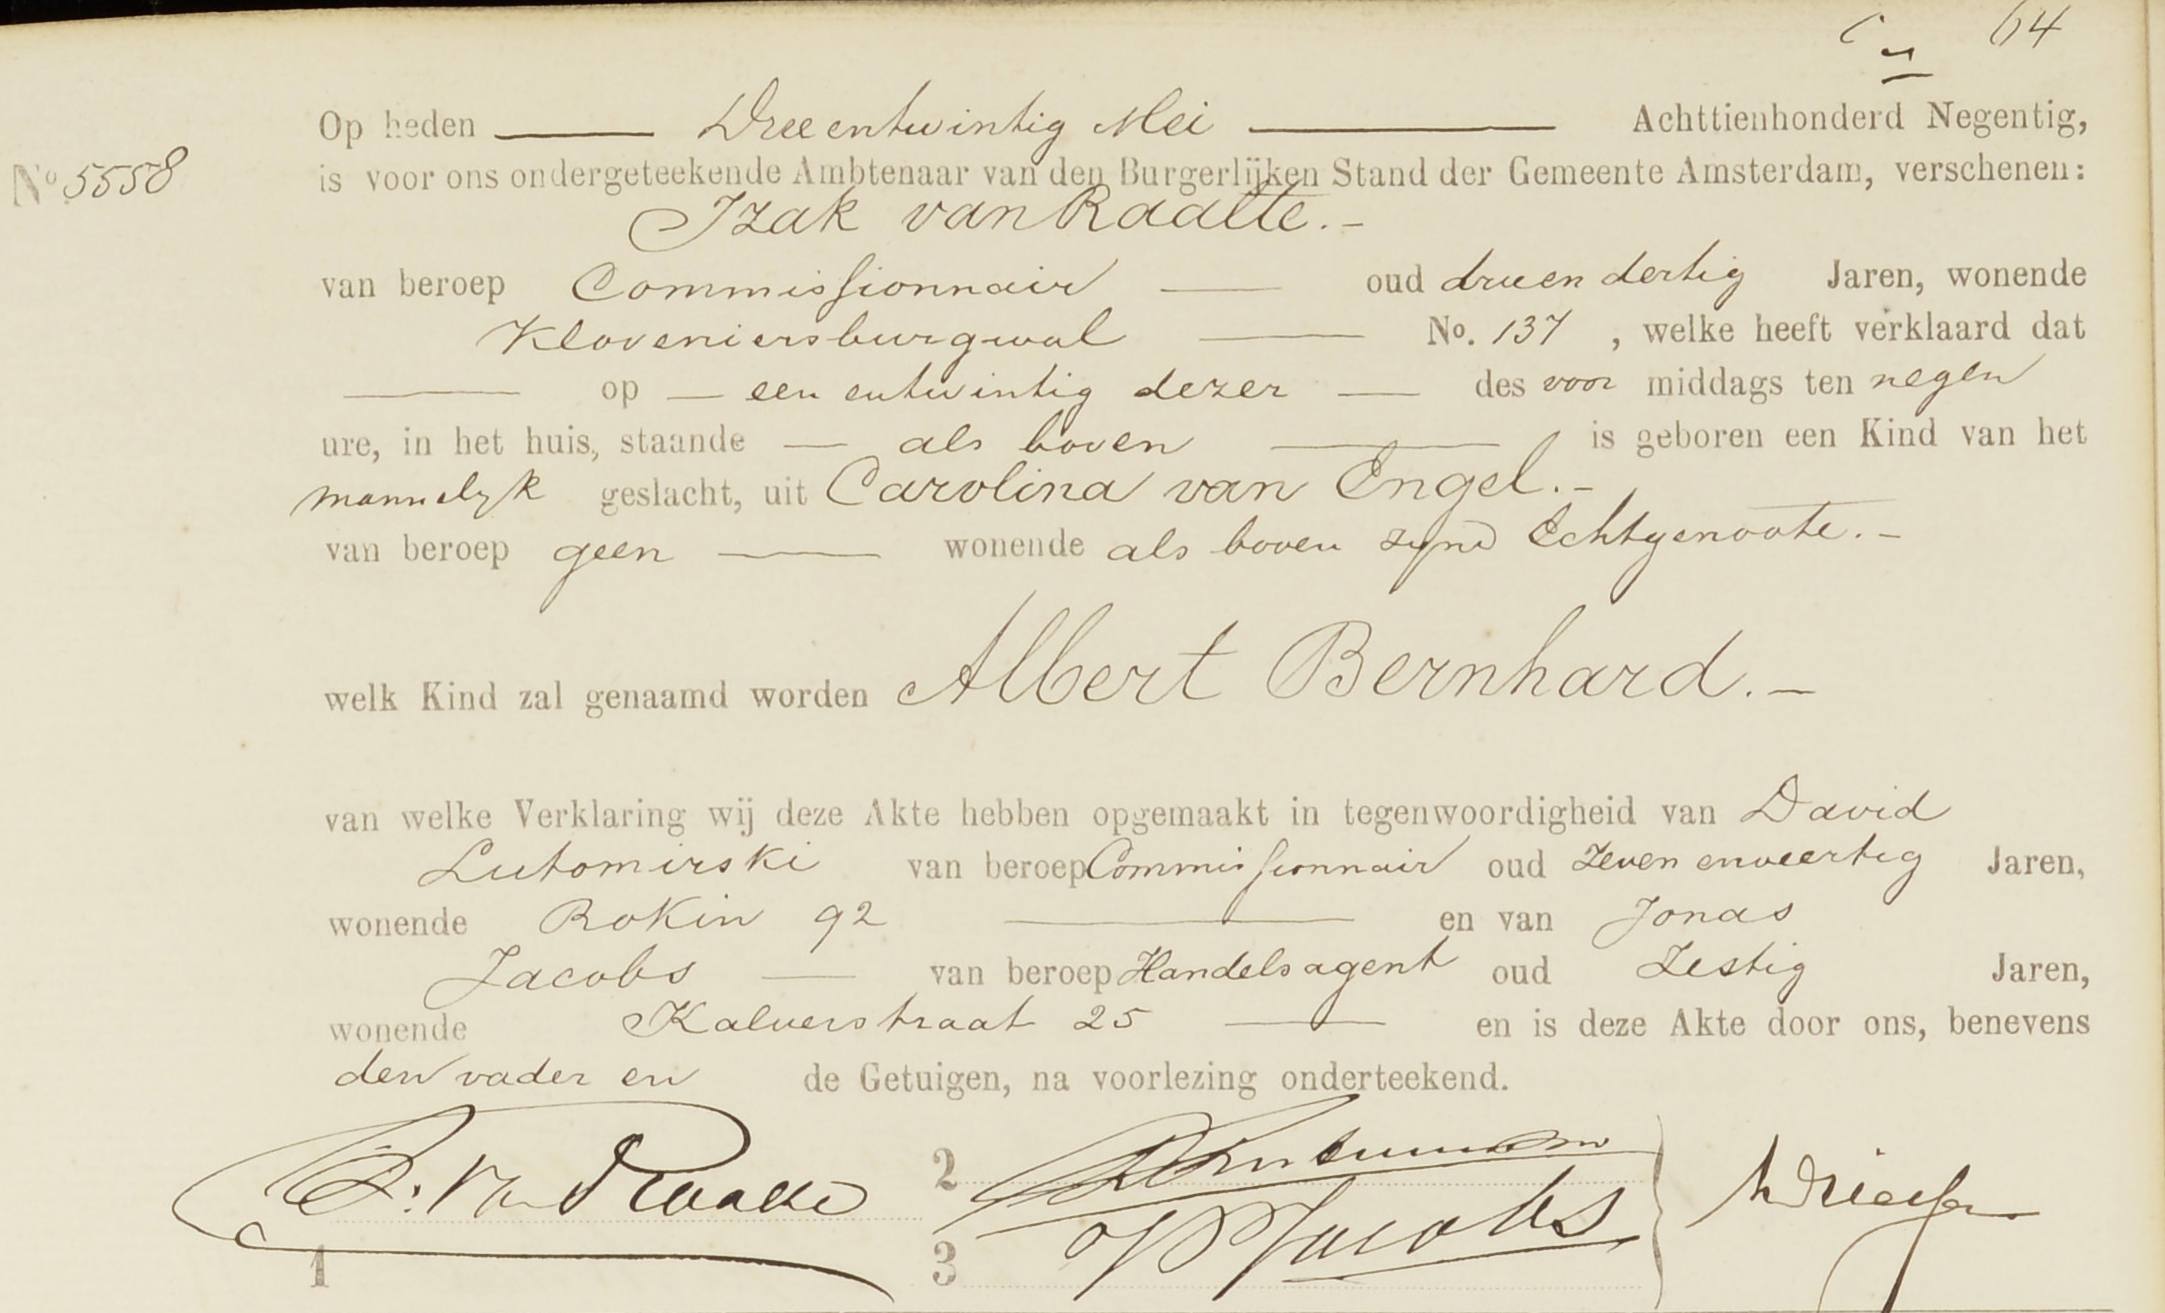 64
Op heden Drieentwintig Mei Achttienhonderd Negentig,
No 5558
is voor ons ondergeteekende Ambtenaar van den Burgerlijken Stand der Gemeente Amsterdam, verschenen:
Izak van Raalte.-
van beroep Commissionnair oud drieendertig Jaren, wonende
Kloveniersburgwal No. 137, welke heeft verklaard dat
op een entwintig dezer des voor middags ten negen
ure, in het huis, staande als boven is geboren een Kind van het
mannelyk geslacht, uit Carolina van Engel.-
van beroep geen wonende als boven zyne Echtgenoote.-
welk Kind zal genaamd worden Albert Bernhard.-
van welke Verklaring wij deze Akte hebben opgemaakt in tegenwoordigheid van David
Lutomirski van beroep Commissionnair oud Zeven enveertig Jaren,
wonende Rokin 92 en van Jonas
Jacobs van beroep Handelsagent oud Zestig Jaren,
wonende Kalverstraat 25 en is deze Akte door ons, benevens
den vader en de Getuigen, na voorlezing onderteekend.
I. van Raalte
2
Jacobs
1
3